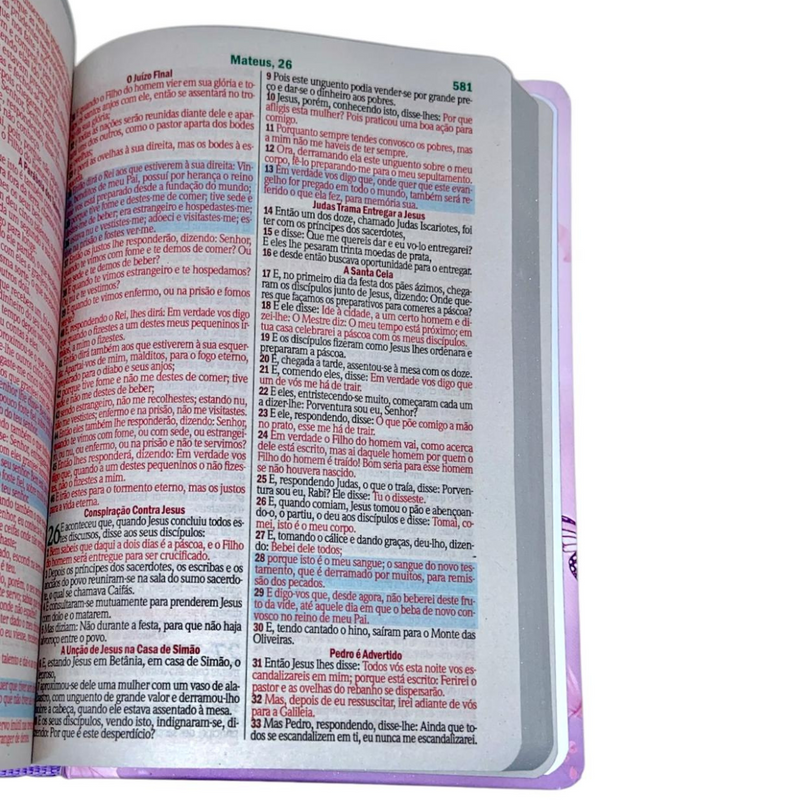 Mateus, 26
581
O Juízo Final
quando o Filho do homem vier em sua glória e to-
santos anjos com ele, então se assentará no tro-
sua glória;
as nações serão reunidas diante dele e apar-
dos outros, como o pastor aparta dos bodes
as ovelhas à sua direita, mas os bodes à es-
dirá o Rei aos que estiverem à sua direita: Vin-
benditos de meu Pai, possuí por herança o reino
está preparado desde a fundação do mundo;
porque tive fome e destes-me de comer; tive sede e
de beber; era estrangeiro e hospedastes-me;
nu e vestistes-me; adoeci e visitastes-me; es-
na prisão e fostes ver-me.
Então os justos lhe responderão, dizendo: Senhor,
quando te vimos com fome e te demos de comer? Ou
sede e te demos de beber?
quando te vimos estrangeiro e te hospedamos?
nu e te vestimos?
quando te vimos enfermo, ou na prisão e fomos
respondendo o Rei, lhes dirá: Em verdade vos digo
quando o fizestes a um destes meus pequeninos ir-
a mim o fizestes.
Então dirá também aos que estiverem à sua esquer-
Apartai-vos de mim, malditos, para o fogo eterno,
preparado para o diabo e seus anjos;
porque tive fome e não me destes de comer; tive
não me destes de beber;
sendo estrangeiro, não me recolhestes; estando nu,
me vestistes; enfermo e na prisão, não me visitastes.
Então eles também lhe responderão, dizendo: Senhor,
quando te vimos com fome, ou com sede, ou estrangei-
ou nu, ou enfermo, ou na prisão e não te servimos?
Então lhes responderá, dizendo: Em verdade vos
digo que, quando a um destes pequeninos o não fizes-
não o fizestes a mim.
E irão estes para o tormento eterno, mas os justos
a vida eterna.
Conspiração Contra Jesus
26 E aconteceu que, quando Jesus concluiu todos es-
tes discursos, disse aos seus discípulos:
Bem sabeis que daqui a dois dias é a páscoa, e o Filho
do homem será entregue para ser crucificado.
3 Depois os príncipes dos sacerdotes, os escribas e os
anciãos do povo reuniram-se na sala do sumo sacerdo-
te, o qual se chamava Caifás.
4 E consultaram-se mutuamente para prenderem Jesus
com dolo e o matarem.
Mas diziam: Não durante a festa, para que não haja
alvoroço entre o povo.
A Unção de Jesus na Casa de Simão
E, estando Jesus em Betânia, em casa de Simão, o
leproso,
aproximou-se dele uma mulher com um vaso de ala-
bastro, com unguento de grande valor e derramou-lho
sobre a cabeça, quando ele estava assentado à mesa.
E os seus discípulos, vendo isto, indignaram-se, di-
zendo: Por que é este desperdício?
9 Pois este unguento podia vender-se por grande pre-
ço e dar-se o dinheiro aos pobres.
10 Jesus, porém, conhecendo isto, disse-lhes: Por que
afligis esta mulher? Pois praticou uma boa ação para
comigo.
11 Porquanto sempre tendes convosco os pobres, mas
a mim não me haveis de ter sempre.
12 Ora, derramando ela este unguento sobre o meu
corpo, fê-lo preparando-me para o meu sepultamento.
13 Em verdade vos digo que, onde quer que este evan-
gelho for pregado em todo o mundo, também será re-
ferido o que ela fez, para memória sua.
Judas Trama Entregar a Jesus
14 Então um dos doze, chamado Judas Iscariotes, foi
ter com os príncipes dos sacerdotes,
15 e disse: Que me quereis dar e eu vo-lo entregarei?
E eles lhe pesaram trinta moedas de prata,
16 e desde então buscava oportunidade para o entregar.
A Santa Ceia
17 E, no primeiro dia da festa dos pães ázimos, chega-
ram os discípulos junto de Jesus, dizendo: Onde que-
res que façamos os preparativos para comeres a páscoa?
18 E ele disse: Ide à cidade, a um certo homem e di-
zei-lhe: O Mestre diz: O meu tempo está próximo; em
tua casa celebrarei a páscoa com os meus discípulos.
19 E os discípulos fizeram como Jesus lhes ordenara e
prepararam a páscoa.
20 E, chegada a tarde, assentou-se à mesa com os doze.
21 E, comendo eles, disse: Em verdade vos digo que
um de vós me há de trair.
22 E eles, entristecendo-se muito, começaram cada um
a dizer-lhe: Porventura sou eu, Senhor?
23 E ele, respondendo, disse: O que põe comigo a mão
no prato, esse me há de trair.
24 Em verdade o Filho do homem vai, como acerca
dele está escrito, mas ai daquele homem por quem o
Filho do homem é traído! Bom seria para esse homem
se não houvera nascido.
25 E, respondendo Judas, o que o traía, disse: Porven-
tura sou eu, Rabi? Ele disse: Tu o disseste.
26 E, quando comiam, Jesus tomou o pão e abençoan-
do-o, o partiu, o deu aos discípulos e disse: Tomai, co-
mei, isto é o meu corpo.
27 E, tomando o cálice e dando graças, deu-lho, dizen-
do: Bebei dele todos;
28 porque isto é o meu sangue; o sangue do novo tes-
tamento, que é derramado por muitos, para remis-
são dos pecados.
29 E digo-vos que, desde agora, não beberei deste fru-
to da vide, até aquele dia em que o beba de novo con-
vosco no reino de meu Pai.
30 E, tendo cantado o hino, saíram para o Monte das
Oliveiras.
Pedro é Advertido
31 Então Jesus lhes disse: Todos vós esta noite vos es-
candalizareis em mim; porque está escrito: Ferirei o
pastor e as ovelhas do rebanho se dispersarão.
32 Mas, depois de eu ressuscitar, irei adiante de vós
para a Galileia.
33 Mas Pedro, respondendo, disse-lhe: Ainda que to-
dos se escandalizem em ti, eu nunca me escandalizarei.